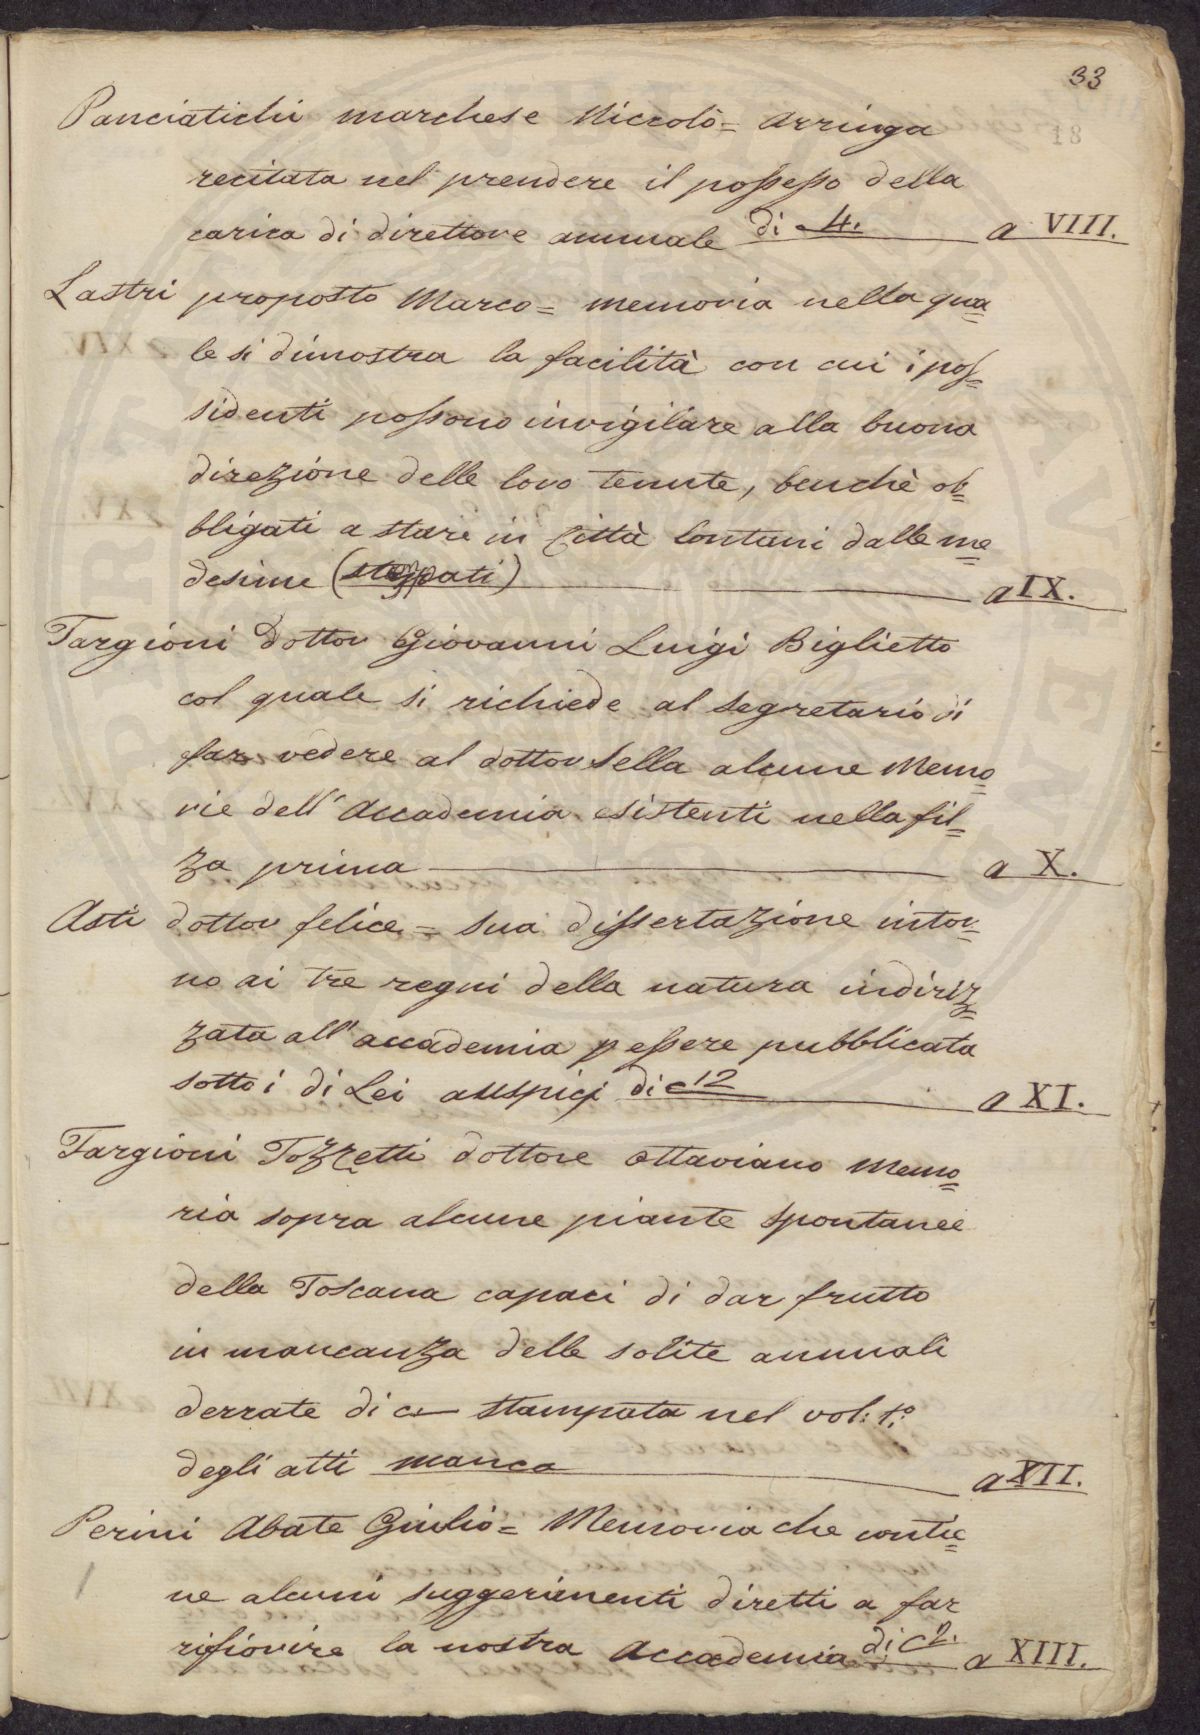 33
18
Panciatichi marchese Niccolò = Arringa
recitata nel prendere il possesso della
carica di direttore annuale di c 4. a VIII.
Lastri proposto Marco = memoria nella qua=
le si dimostra la facilità con cui i pos=
sidenti possono invigilare alla buona
direzione delle loro tenute, benchè ob=
bligati a stare in Città lontani dalle me=
desime ( ) a IX.
Targioni Dottor Giovanni Luigi Biglietto
col quale si richiede al segretario di
far vedere al dottor Sella alcune Memo=
rie dell'Accademia esistenti nella fil=
za prima a X.
Asti dottor felice = sua dissertazione intor=
no ai tre regni della natura indiriz=
zata all'accademia p essere pubblicata
sotto i di Lei auspicj di c 12 a XI.
Targioni Tozzetti dottore Ottaviano Memo=
ria sopra alcune piante spontanee
della Toscana capaci di dar frutto
in mancanza delle solite annuali
derrate di c — stampata nel vol: 1.°
degli atti manca a XII.
Perini Abate Giulio = Memoria che contie=
ne alcuni suggerimenti diretti a far
rifiorire la nostra Accademia di c 2. a XIII.